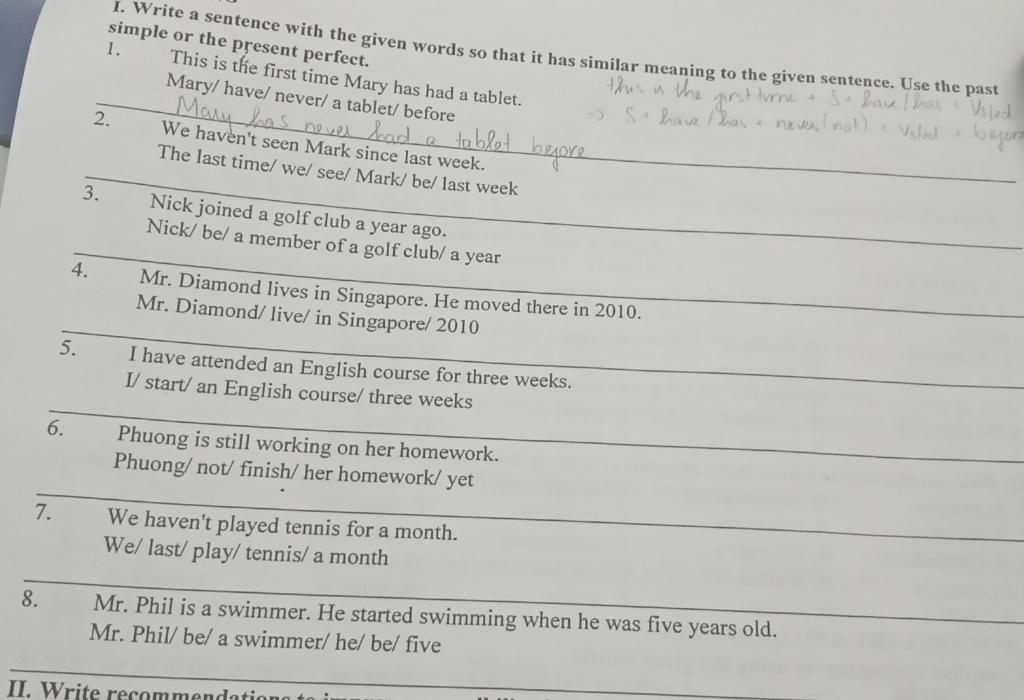 I. Write a sentence with the given words so that it has similar meaning to the given sentence. Use the past
simple or the present perfect.
1. This is the first time Mary has had a tablet.
this is the first time + S + have/has + V3/ed
Mary/ have/ never/ a tablet/ before
=> S + have/has + never (not) + V3/ed + before
Mary has never had a tablet before
2. We haven't seen Mark since last week.
The last time/ we/ see/ Mark/ be/ last week
3. Nick joined a golf club a year ago.
Nick/ be/ a member of a golf club/ a year
4. Mr. Diamond lives in Singapore. He moved there in 2010.
Mr. Diamond/ live/ in Singapore/ 2010
5. I have attended an English course for three weeks.
I/ start/ an English course/ three weeks
6. Phuong is still working on her homework.
Phuong/ not/ finish/ her homework/ yet
7. We haven't played tennis for a month.
We/ last/ play/ tennis/ a month
8. Mr. Phil is a swimmer. He started swimming when he was five years old.
Mr. Phil/ be/ a swimmer/ he/ be/ five
II. Write recommendations to